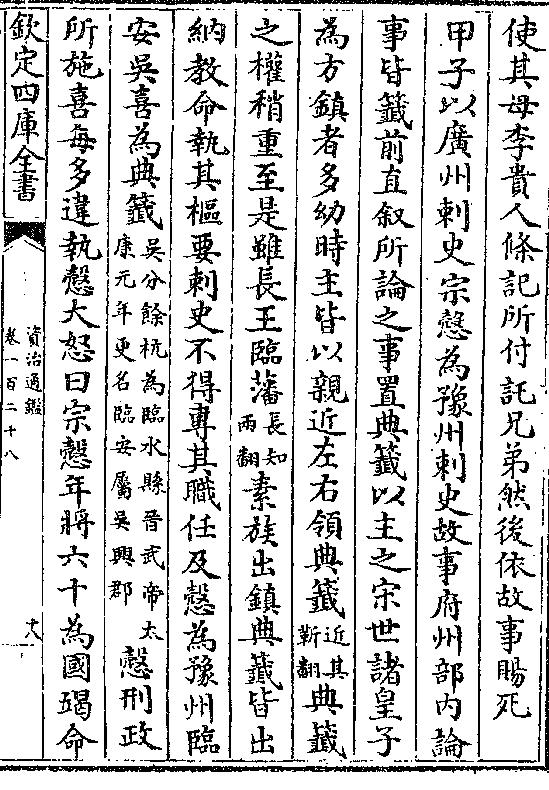 使其母李貴人條記所付託兄弟然後依故事賜死
甲子以廣州刺史宗慤為豫州刺史故事府州部内論
事皆籖前直叙所論之事置典籖以主之宋世諸皇子
為方鎮者多幼時主皆以親近左右領典籖近其靳翻典籖
之權稍重至是雖長王臨藩長知兩翻素族出鎮典籖皆出
納教命執其樞要刺史不得專其職任及慤為豫州臨
安吳喜為典籖吳分餘杭為臨水縣晉武帝太康元年更名臨安屬吳興郡慤刑政
所施喜每多違執慤大怒曰宗慤年將六十為國竭命
欽定四庫全書
資治通鑑
卷一百二十八
十八